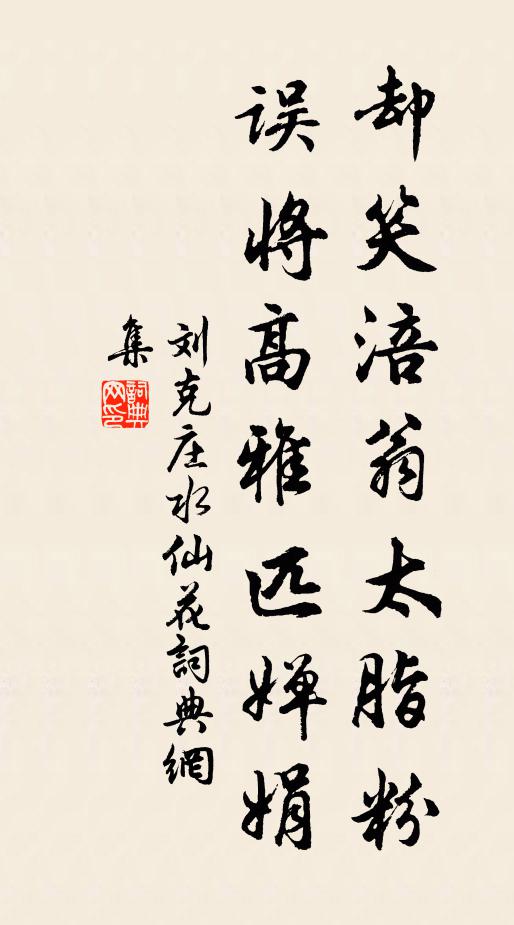 却笑涪翁太脂粉
误将高雅匹婵娟
刘克庄水仙花詞典網
集
詞典
网印